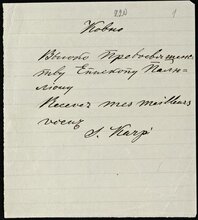 220 1
Ковно
Высоко Преосвященс-
тву Епископу Палю-
лiону
Recevez mes meilleurs
voeux
S. Karp'